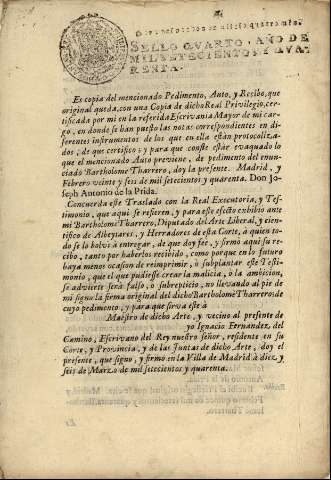 SELLO QVARTO, AÑO DE
MIL SETECIENTOS Y QVA-
RENTA.
Es copia del mencionado Pedimento, Auto, y Recibo, que
original queda, con una Copia de dicho Real Privilegio, cer-
tificada por mi en la referida Escrivania Mayor de mi car-
go, en donde se han puesto las notas correspondientes en di-
ferentes instrumentos de los que en ella estàn protocoliza-
dos; de que certifico: y para que conste estàr evaquado lo
que el mencionado Auto previene, de pedimento del enun-
ciado Bartholome Tharrero, doy la presente. Madrid, y
Febrero veinte y seis de mil setecientos y quarenta. Don Jo-
seph Antonio de la Prida.
Concuerda este Traslado con la Real Executoria, y Tes-
timonio, que aqui se refieren, y para este efecto exhibiò ante
mi Bartholomè Tharrero, Diputado del Arte Liberal, y cien-
tifico de Albeytares, y Herradores de esta Corte, à quien to-
do se lo bolvi à entregar, de que doy feè, y firmò aqui su re-
cibo, tanto por haberlos recibido, como porque en lo futuro
haya menos ocasion de reimprimir, ò subplantar este Testi-
monio, que el que pudiesse crear la malicia, ò la ambicion,
se advierte serà falso, ò subrepticio, no llevando al pie de
mi signo la firma original del dicho Bartholomè Tharrero: de
cuyo pedimento, y para que sirva este à
Maestro de dicho Arte, y vecino al presente de
yo Ignacio Fernandez del
Camino, Escrivano del Rey nuestro señor, residente en su
Corte, y Provincia, y de las Juntas de dicho Arte, doy el
presente, que signo, y firmo en la Villa de Madrid à diez y
seis de Marzo de mil setecientos y quarenta.